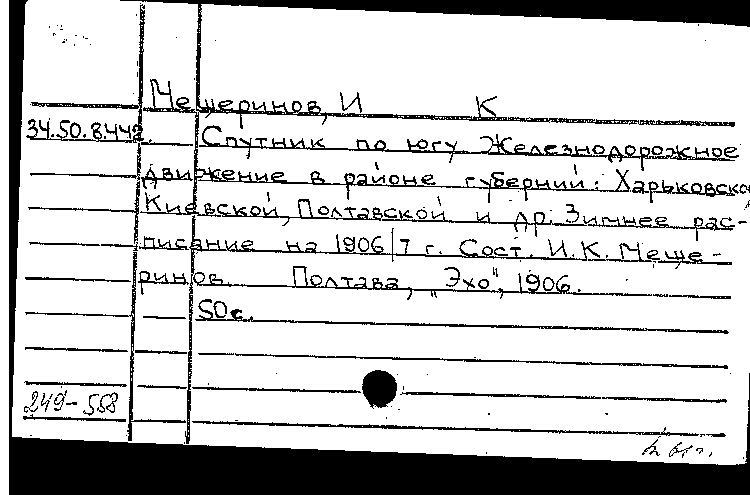 Мещеринов, И К
34.50.8.442. Спутник по югу Железнодорожное
движение в районе губерний: Харьковской
Киевской, Полтавской и др. Зимнее рас-
писание на 1906/7 г. Сост. И.К. Меще-
ринов. Полтава, „Эхо", 1906.
50 с.
249-558